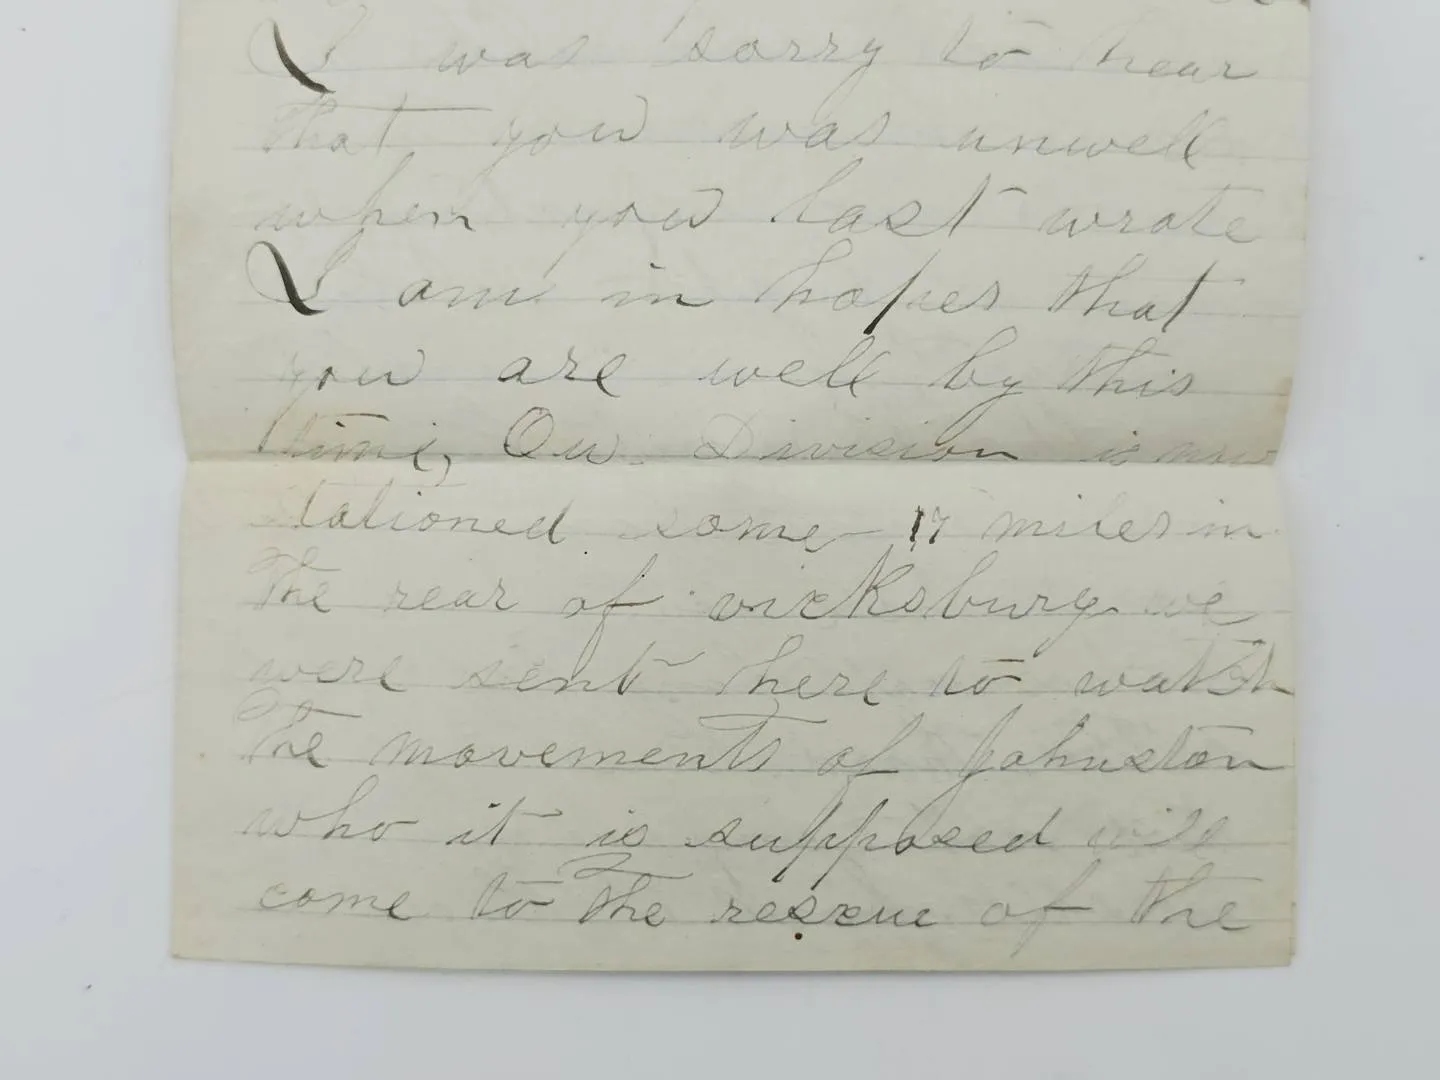 I was sorry to hear
that you was unwell
when you last wrote
I am in hopes that
you are well by this
time, Ou. Division is now
stationed some 17 miles in
the rear of vicksburg we
were sent here to watch
the movements of Johnston
who it is supposed will
come to the rescue of the